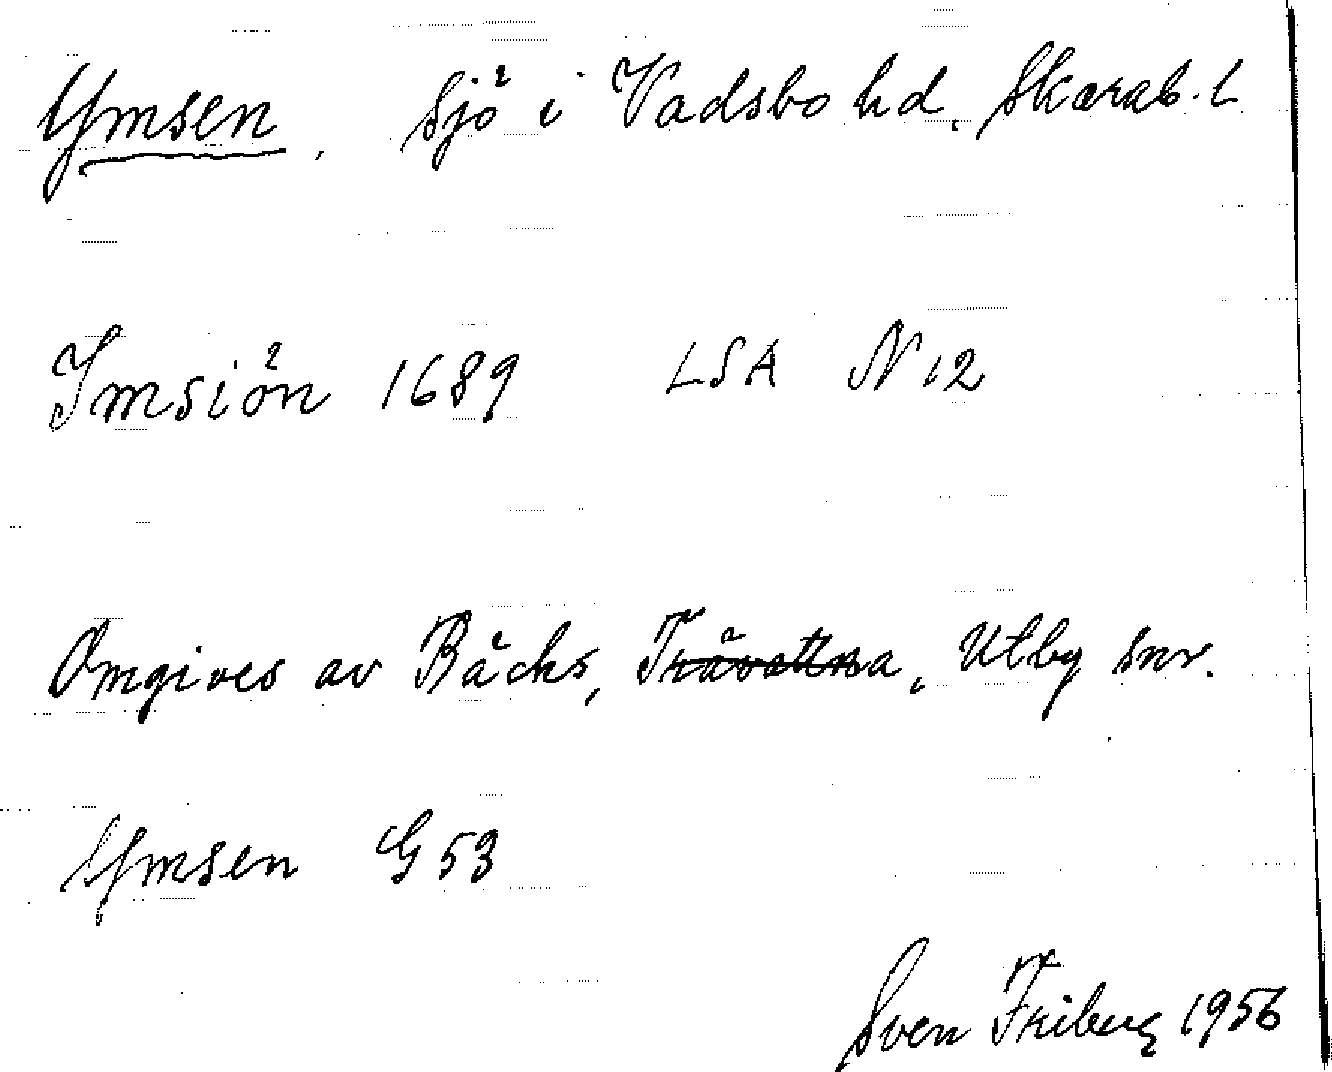 Ymsen, sjö i Vadsbo hd. Skarab. l.
Imsiön 1689 LSA N 12
Omgives av Bäcks, Trävattna, Utby snr.
Ymsen G 53
Sven Friberg 1956